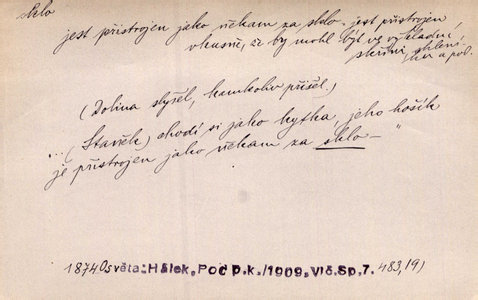 sklo
jest přistrojen jako někam za sklo. jest přistrojen
vkusně, že by mohl být ve výkladní
skříni skleni,
(Dolina slyšel, kamkoliv přišel.)
...(Stavěk) chodí si jako kytka, jeho košík
je přistrojen jako někam za sklo –"
1874 Osvěta: Hálek, Pod p.k./1909, Vlč. Sp. 7. 483, 19)